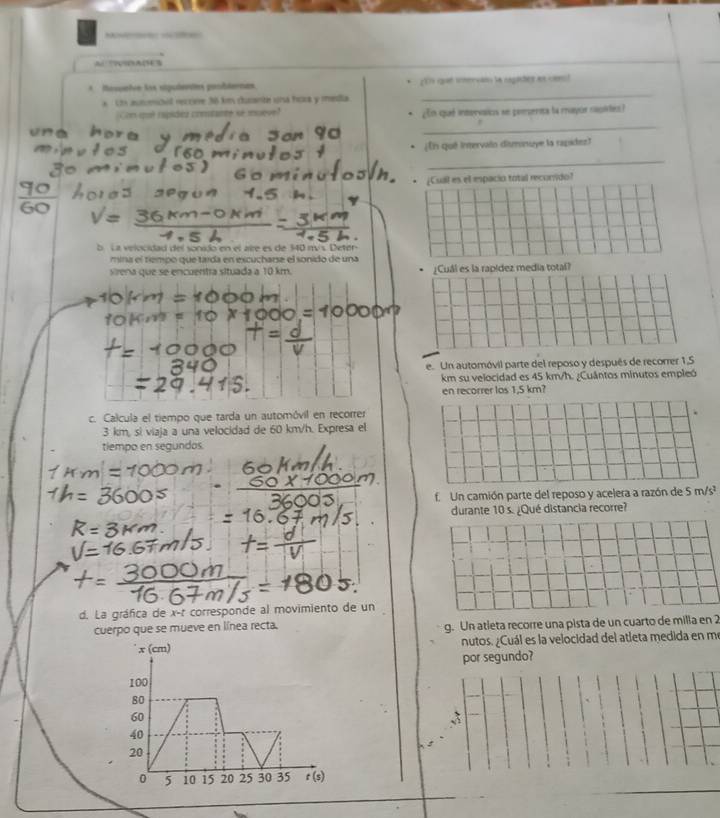 ACTIVIDADES
a. Un automóvil recorre 36 km durante una hora y media.
¿Con qué rapidez constante se mueve?
una hora y media son 90
minutos (60 minutos +
30 minutos) 60 minutos/h.
90/60 horas segun 1.5 h.
V = 36 km - 0 km / 1.5 h = 3 km / 1.5 h.
b. La velocidad del sonido en el aire es de 340 m/s. Deter-
mina el tiempo que tarda en escucharse el sonido de una
sirena que se encuentra situada a 10 km.
10 km = 1000 m.
10 km = 10 x 1000 = 10000 m
t = d/V
t = 10000 / 340
= 29.415.
c. Calcula el tiempo que tarda un automóvil en recorrer
3 km, si viaja a una velocidad de 60 km/h. Expresa el
tiempo en segundos.
1 km = 1000 m. 60 km/h.
1h = 3600 s 60 x 1000 m. / 3600 s
= 16.67 m/s
R = 3 km.
V = 16.67 m/s t = d/V
t = 3000 m / 16.67 m/s = 180 s.
d. La gráfica de x-t corresponde al movimiento de un
cuerpo que se mueve en línea recta.
x (cm)
100
80
60
40
20
0 5 10 15 20 25 30 35 t (s)
¿En qué intervalos se presenta la mayor rapidez?
¿En qué intervalo disminuye la rapidez?
¿Cuál es el espacio total recorrido?
¿Cuál es la rapidez media total?
e. Un automóvil parte del reposo y después de recorrer 1,5
km su velocidad es 45 km/h. ¿Cuántos minutos empleó
en recorrer los 1,5 km?
f. Un camión parte del reposo y acelera a razón de 5 m/s²
durante 10 s. ¿Qué distancia recorre?
g. Un atleta recorre una pista de un cuarto de milla en 2
nutos. ¿Cuál es la velocidad del atleta medida en me
por segundo?